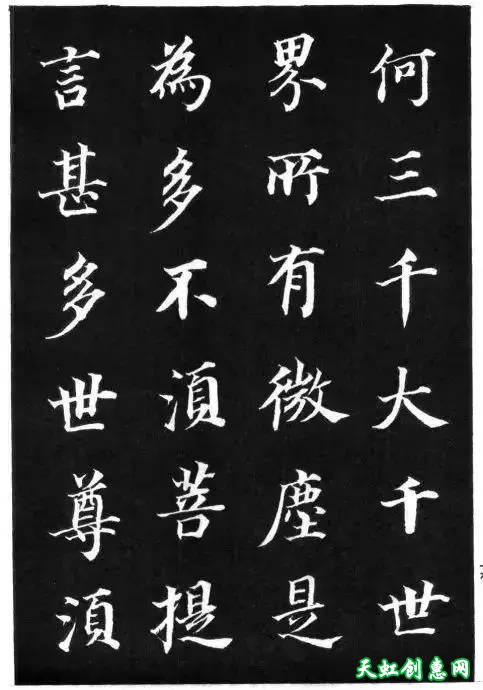 何三千大千世
界所有微塵是
為多不湏菩提
言甚多世尊湏
天虹创惠网